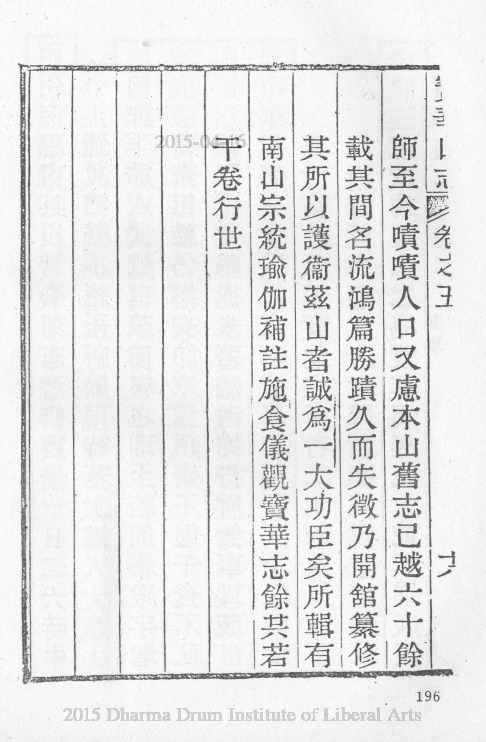 寶華山志 卷之五
十六
師至今嘖嘖人口又慮本山舊志已越六十餘
載其間名流鴻篇勝蹟久而失徵乃開舘纂修
其所以護衞茲山者誠爲一大功臣矣所輯有
南山宗統瑜伽補註施食儀觀寶華志餘共若
干卷行世
2015-04-16
196
2015 Dharma Drum Institute of Liberal Arts